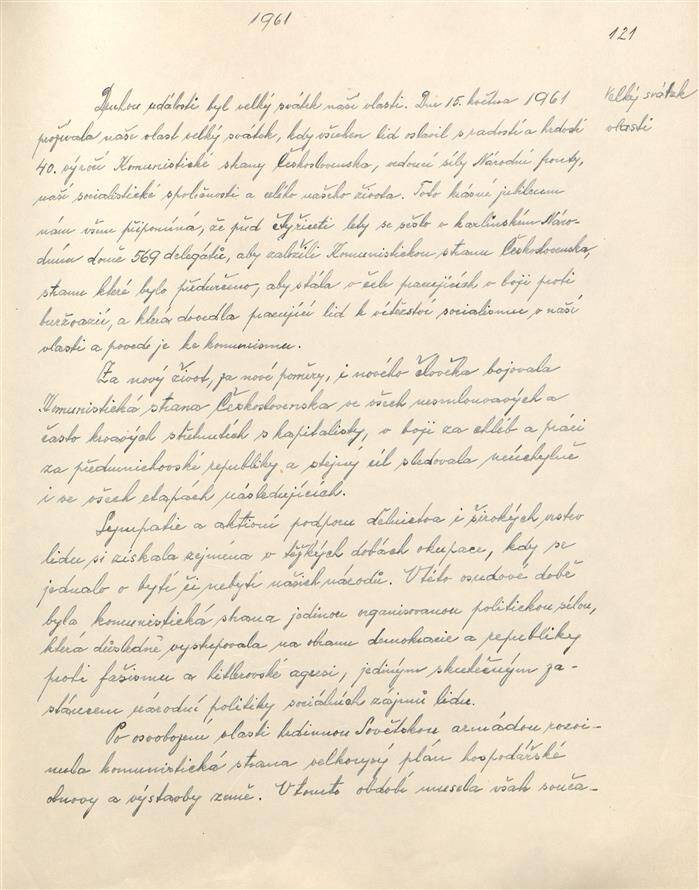 1961
121
Velký svátek
vlasti
Druhou událostí byl velký svátek naší vlasti. Dne 15. května 1961
prožívala naše vlast velký svátek, kdy všechen lid oslavil s radostí a hrdostí
40. výročí Komunistické strany Československa, vedoucí síly Národní fronty,
naší socialistické společnosti a celého našeho života. Toto krásné jubileum
nám všem připomíná, že před čtyřiceti lety se sešlo v karlínském Náro-
dním domě 569 delegátů, aby založili Komunistickou stranu Československa,
stranu které bylo předurčeno, aby stála v čele pracujících v boji proti
buržoazii, a která dovedla pracující lid k vítězství socialismu v naší
vlasti a povede je ke komunismu.
Za nový život, za nové poměry, i nového člověka bojovala
Komunistická strana Československa ve všech nesmlouvavých a
často krvavých střetnutích s kapitalisty, v boji za chléb a práci
za předmnichovské republiky a stejný cíl sledovala neúchylně
i ve všech etapách následujících.
Sympatie a aktivní podporu dělnictva i širokých vrstev
lidu si získala zejména v těžkých dobách okupace, kdy se
jednalo o bytí či nebytí našich národů. V této osudové době
byla komunistická strana jedinou organisovanou politickou silou,
která důsledně vystupovala na obranu demokracie a republiky
proti fašismu a hitlerovské agresi, jediným skutečným za-
stáncem národní politiky sociálních zájmů lidu.
Po osvobození vlasti hrdinnou Sovětskou armádou rozvi-
nula komunistická strana velkorysý plán hospodářské
obnovy a výstavby země. V tomto období musela však souča-